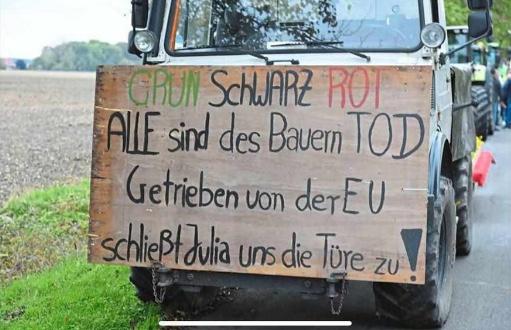 GRÜN SCHWARZ ROT
ALLE sind des Bauern TOD
Getrieben von der EU
schließt Julia uns die Türe zu!